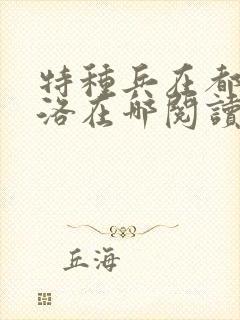 特種兵在都
洛在哪閱讀
丘海